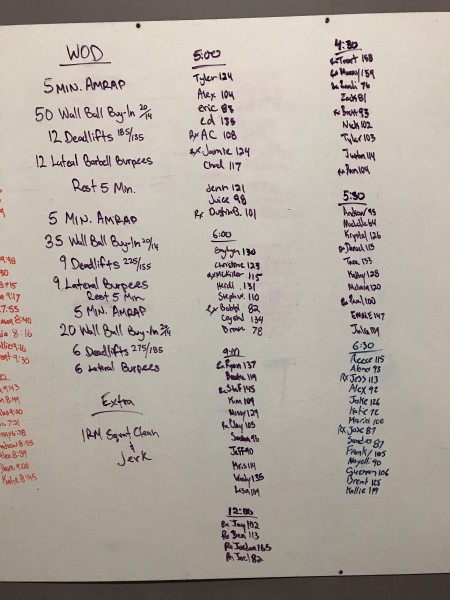 WOD
5 MIN. AMRAP
50 Wall Ball Buy-In 20/14
12 Deadlifts 185/135
12 Lateral Barbell Burpees
Rest 5 Min.
5 MIN. AMRAP
35 Wall Ball Buy-In 20/14
9 Deadlifts 225/155
9 Lateral Burpees
Rest 5 Min
5 MIN. AMRAP
20 Wall Ball Buy-In 20/14
6 Deadlifts 275/185
6 Lateral Burpees
Extra
1RM Squat Clean
& Jerk
5:00
Tyler 124
Alex 104
eric 88
ed 138
Rx AC 108
Rx Jamie 124
Chad 117
Jenn 121
Juice 98
Rx Dustin B. 101
6:00
130
Christine 123
115
Heidi 131
Stephen 110
Rx Bobbi 82
Crystal 134
78
9:00
Rx Ryan 137
119
Rx Staf 145
Kim 109
Missy 129
Rx Clay 105
Sandra 96
Jeff 90
Kris 114
Wendy 135
Lisa 109
12:00
Rx Jay 102
Rx Ben 113
Rx Jordan 165
Rx Joel 82
4:30
Trent 158
139
76
Zack 81
Rx Brett 93
Nick 102
Tyler 103
Justin 114
Rx Pam 104
5:30
Andrew 95
Michelle 64
Krystal 126
Rx Daniel 115
Tara 133
Kathy 128
Melanie 120
Rx Paul 100
147
Julia 114
6:30
Reece 115
Alana 93
Rx Jess 113
Alex 92
Jake 126
Katie 72
Maria 100
Rx Jase 87
Sandra 87
Frank 105
Nayelli 90
Guzman 106
Brent 125
Kallie 119
8:40
8:16
9:16
9:30
9:43
8:49
9:00
7:21
6:28
8:55
8:59
9:00
Katie 8:45